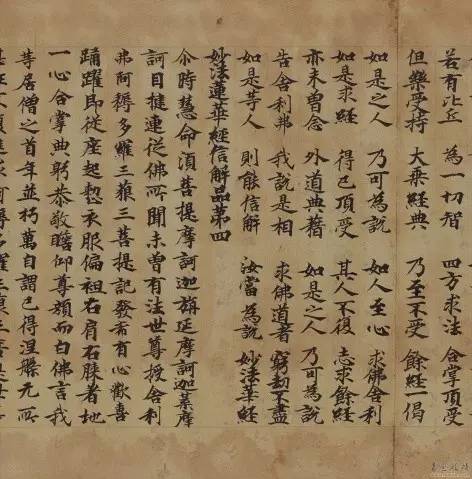 若有比丘 為一切智 四方求法 合掌頂受
但樂受持 大乘經典 乃至不受 餘經一偈
如是之人 乃可為說 如人至心 求佛舍利
如是求經 得已頂受 其人不復 志求餘經
亦未曾念 外道典藉 如是之人 乃可為說
告舍利弗 我說是相 求佛道者 窮劫不盡
如是等人 則能信解 汝當為說 妙法華經
妙法蓮華經信解品第四
尒時慧命須菩提摩訶迦旃延摩訶迦葉摩
訶目揵連從佛所聞未曾有法世尊授舍利
弗阿耨多羅三藐三菩提記發希有心歡喜
踊躍即從座起整衣服偏袒右肩右膝著地
一心合掌曲躬恭敬瞻仰尊顏而白佛言我
等居僧之首年並朽萬自謂已得涅槃无所